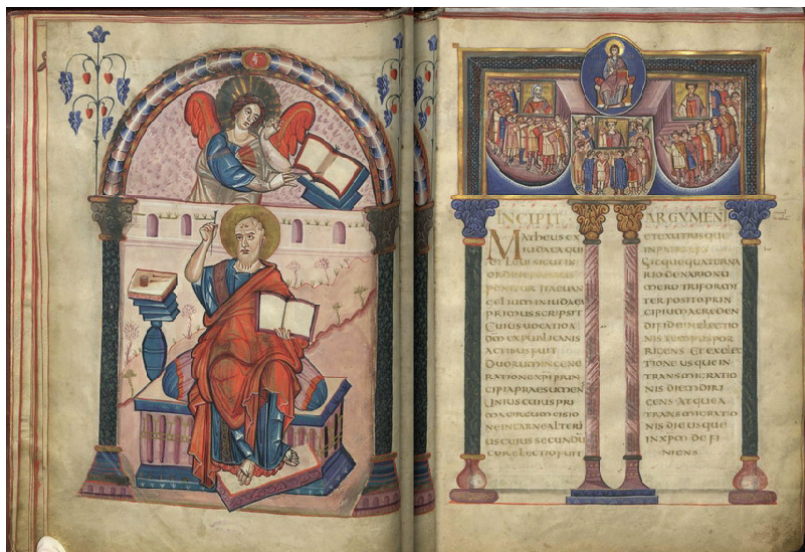 INCIPIT
Matheus ex
iudaea qui
et Levi sicut in
ordine primus
ponitur ita evan
gelium in iudaea
primus scripsit
Cuius vocatio a
dm ex publicanis
actibus fuit
Duorum in gene
ratione xpi prin
cipia praesumen
Unius cuius pri
ma circumcisio
ne in carne alteri
us cuius secundu
cor electio fuit
ARGVMENT
et ex utrisque
in patribus xps
Sicque quaterna
rio denario nu
mero triformi
ter posito prin
cipium a creden
di fide in electio
nis tempus por
rigens Et ex elec
tione usque in
transmigratio
nis diem diri
gens Atque a
transmigratio
nis die usque
in xpm de fi
niens